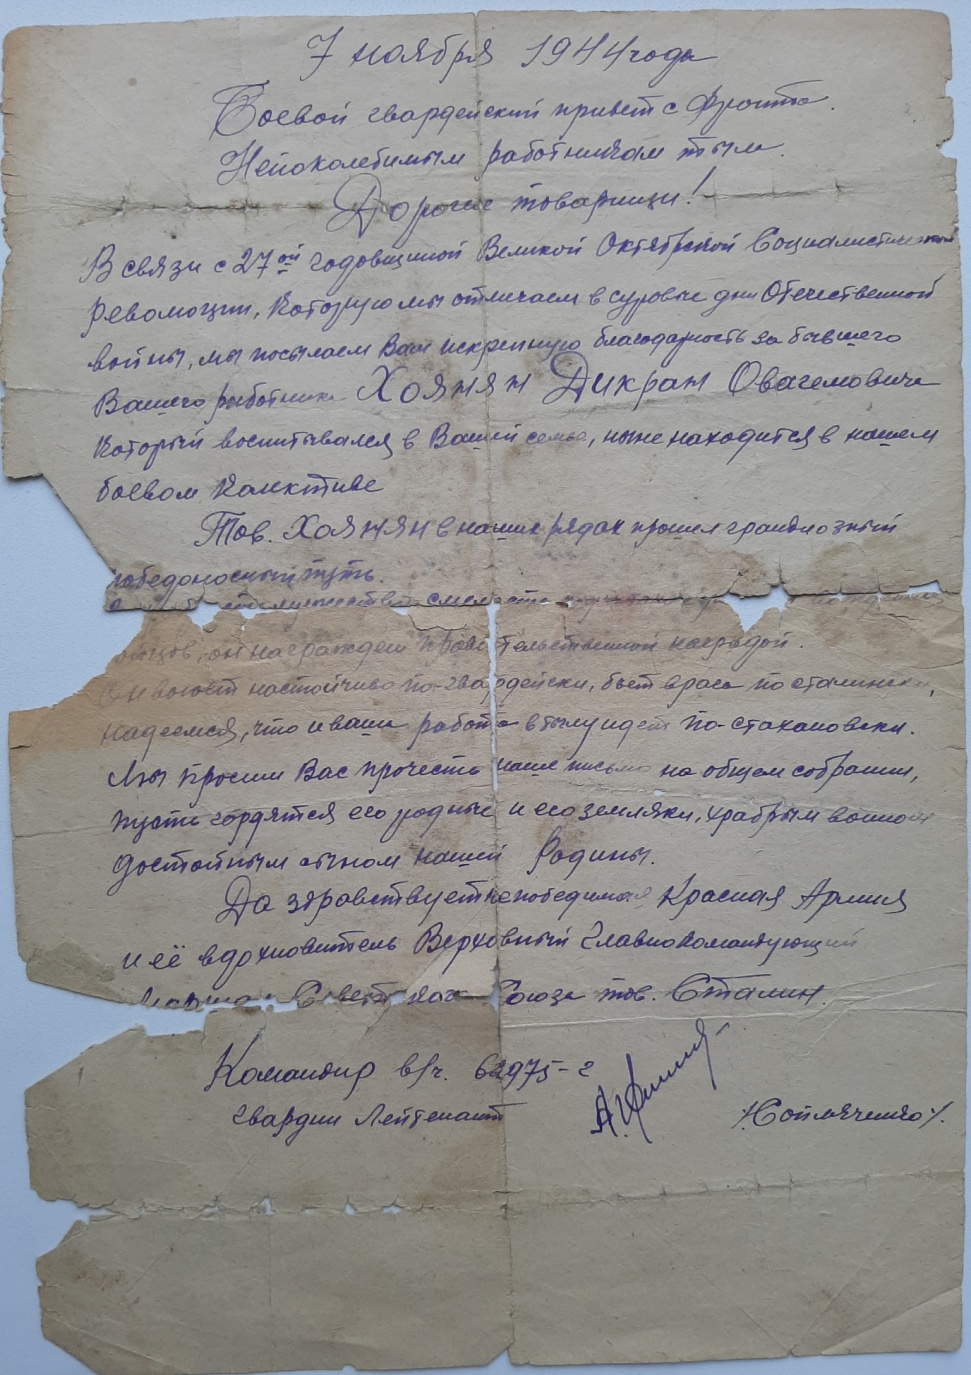 7 ноября 1944 года
Боевой гвардейский привет с фронта.
Непоколебимым работникам тыла.
Дорогие товарищи!
В связи с 27ой годовщиной Великой Октябрской Социалистической
революции, которую мы отмечаем в суровые дни Отечественной
войны, мы посылаем Вам искреннюю благодарность за бывшего
Вашего работника Хоянян Дикран Овагемовича
который воспитывался в Вашей семье, ныне находится в нашем
боевом колективе
Тов. Хоянян в наших рядах прошел грандиозный
победоносный путь.
смелость
он награжден правительственной наградой.
Он воюет настойчиво по-гвардейски, бьет врага по сталински,
надеемся, что и ваша работа в тылу идет по-стахановски.
Мы просим Вас прочесть наше письмо на общем собрании,
пусть гордятся его родные и его земляки, храбрым воином
достойным сыном нашей Родины.
Да здравствует непобедимая Красная Армия
и её вдохновитель Верховный Главнокомандующий
Маршал Советского Союза тов. Сталин.
Командир в/ч. 62975-г
гвардии Лейтенант